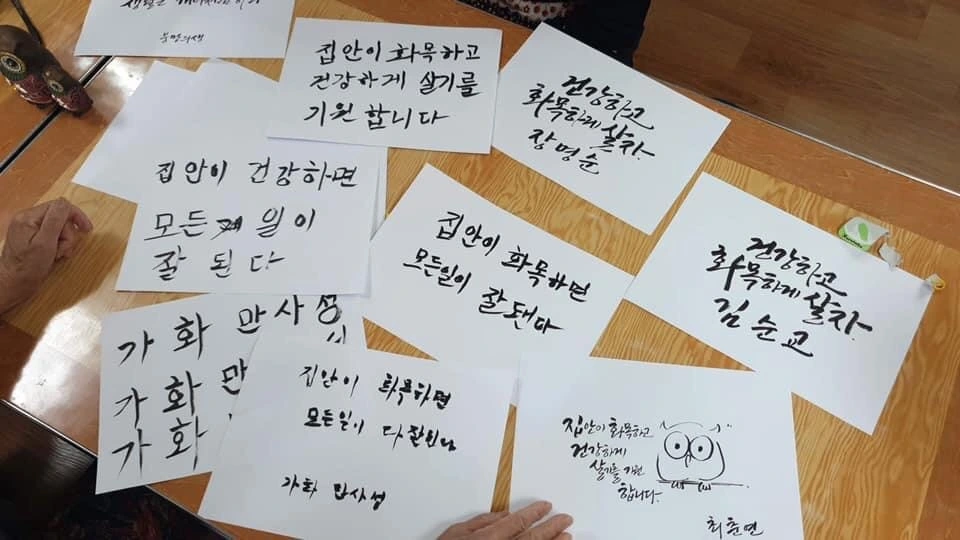 집안이 화목하고
건강하게 살기를
기원 합니다
건강하고
화목하게 살자.
장명순
집안이 건강하면
모든 일이
잘 된다
집안이 화목하면
모든일이 잘 됀다
건강하고
화목하게 살자.
김순고
가화만사성
가화만
가화
집안이 화목하면
모든일이 다 잘된다
가화 만사성
집안이 화목하고
건강하게
살기를 기원
합니다.
최춘연